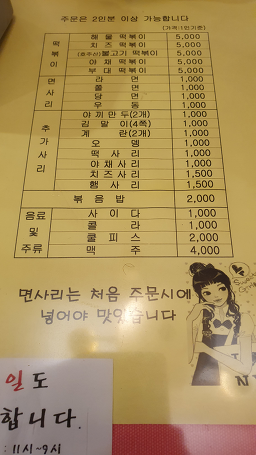 주문은 2인분 이상 가능합니다
(가격:1인기준)
떡볶이
해물 떡볶이 5,000
치즈 떡볶이 5,000
(호주산)불고기 떡볶이 5,000
야채 떡볶이 5,000
부대 떡볶이 5,000
면사리
라면 1,000
쫄면 1,000
당면 1,000
우동 1,000
추가사리
야끼만두(2개) 1,000
김말이(4쪽) 1,000
계란(2개) 1,000
오뎅 1,000
떡사리 1,000
야채사리 1,000
치즈사리 1,500
햄사리 1,500
볶음밥 2,000
음료 및 주류
사이다 1,000
콜라 1,000
쿨피스 2,000
맥주 4,000
면사리는 처음 주문시에
넣어야 맛있습니다
일도
합니다.
: 11시~9시